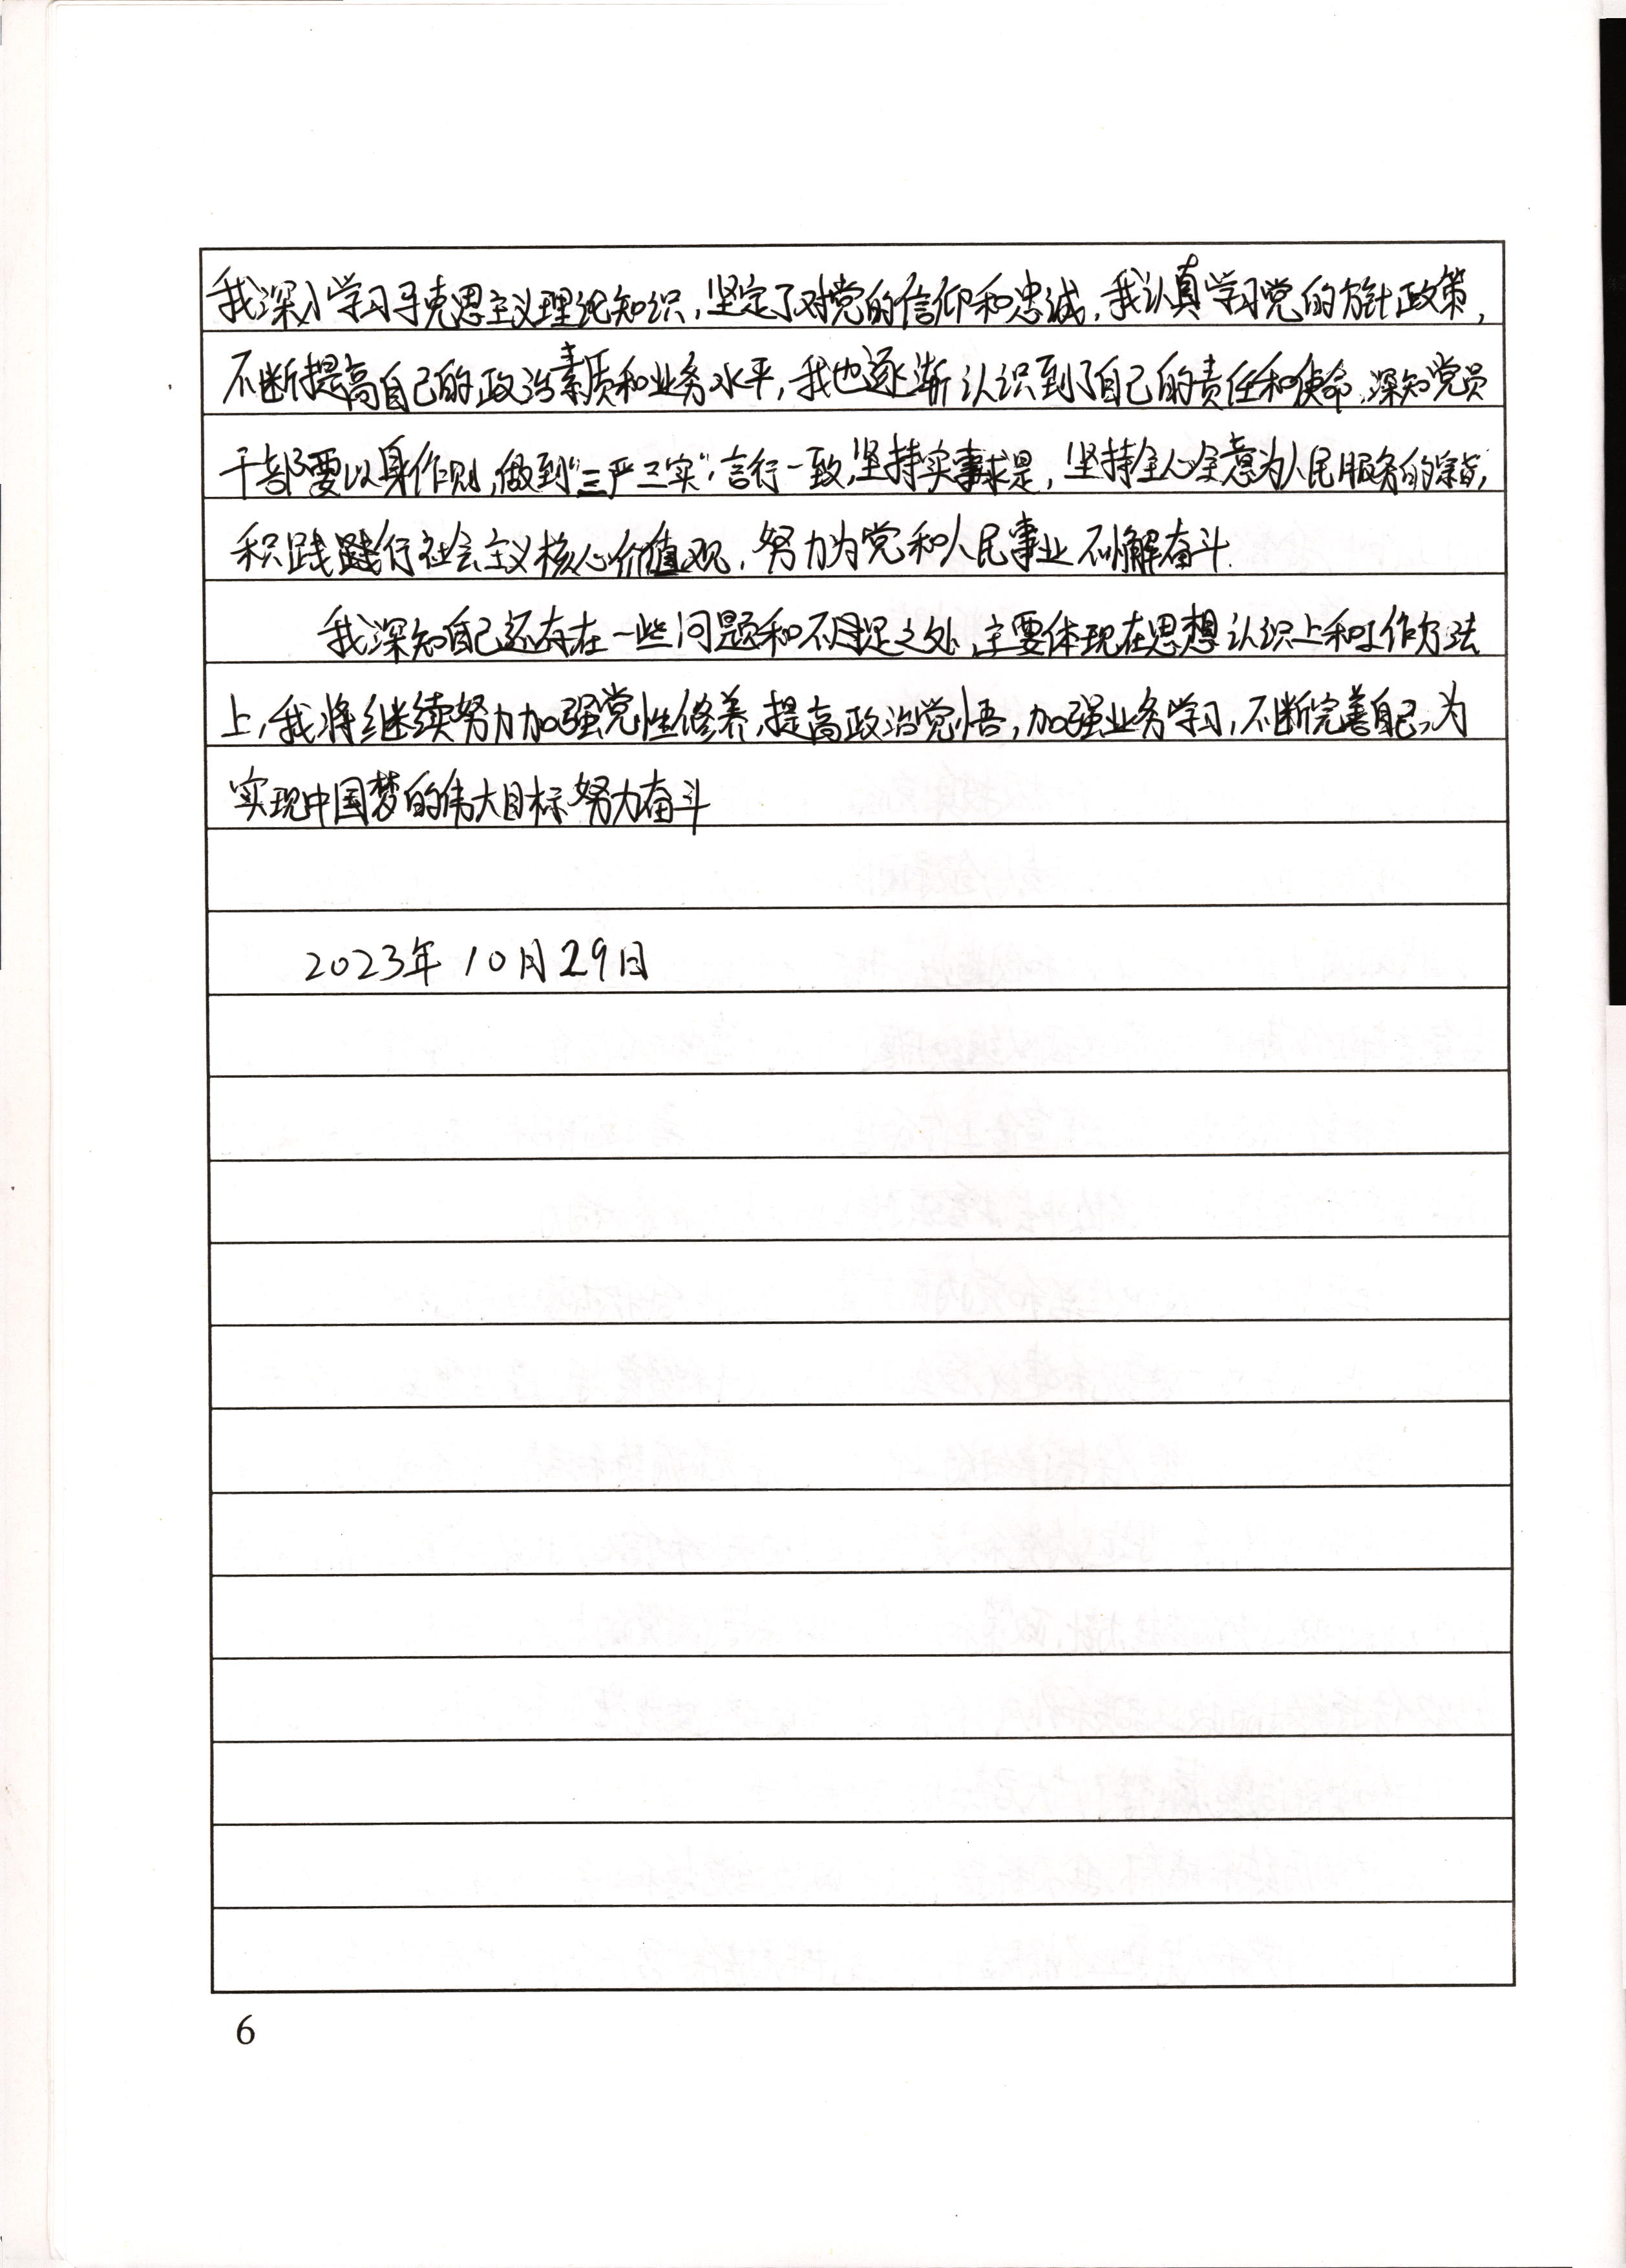 我深入学习马克思主义理论知识，坚定了对党的信仰和忠诚，我认真学习党的方针政策，
不断提高自己的政治素质和业务水平，我也逐渐认识到了自己的责任和使命，深知党员
干部要以身作则，做到“三严三实”，言行一致，坚持实事求是，坚持全心全意为人民服务的宗旨，
积践践行社会主义核心价值观，努力为党和人民事业不懈奋斗.
我深知自己还存在一些问题和不足之处，主要体现在思想认识上和工作方法
上，我将继续努力加强党性修养，提高政治觉悟，加强业务学习，不断完善自己，为
实现中国梦的伟大目标努力奋斗
2023年10月29日
6